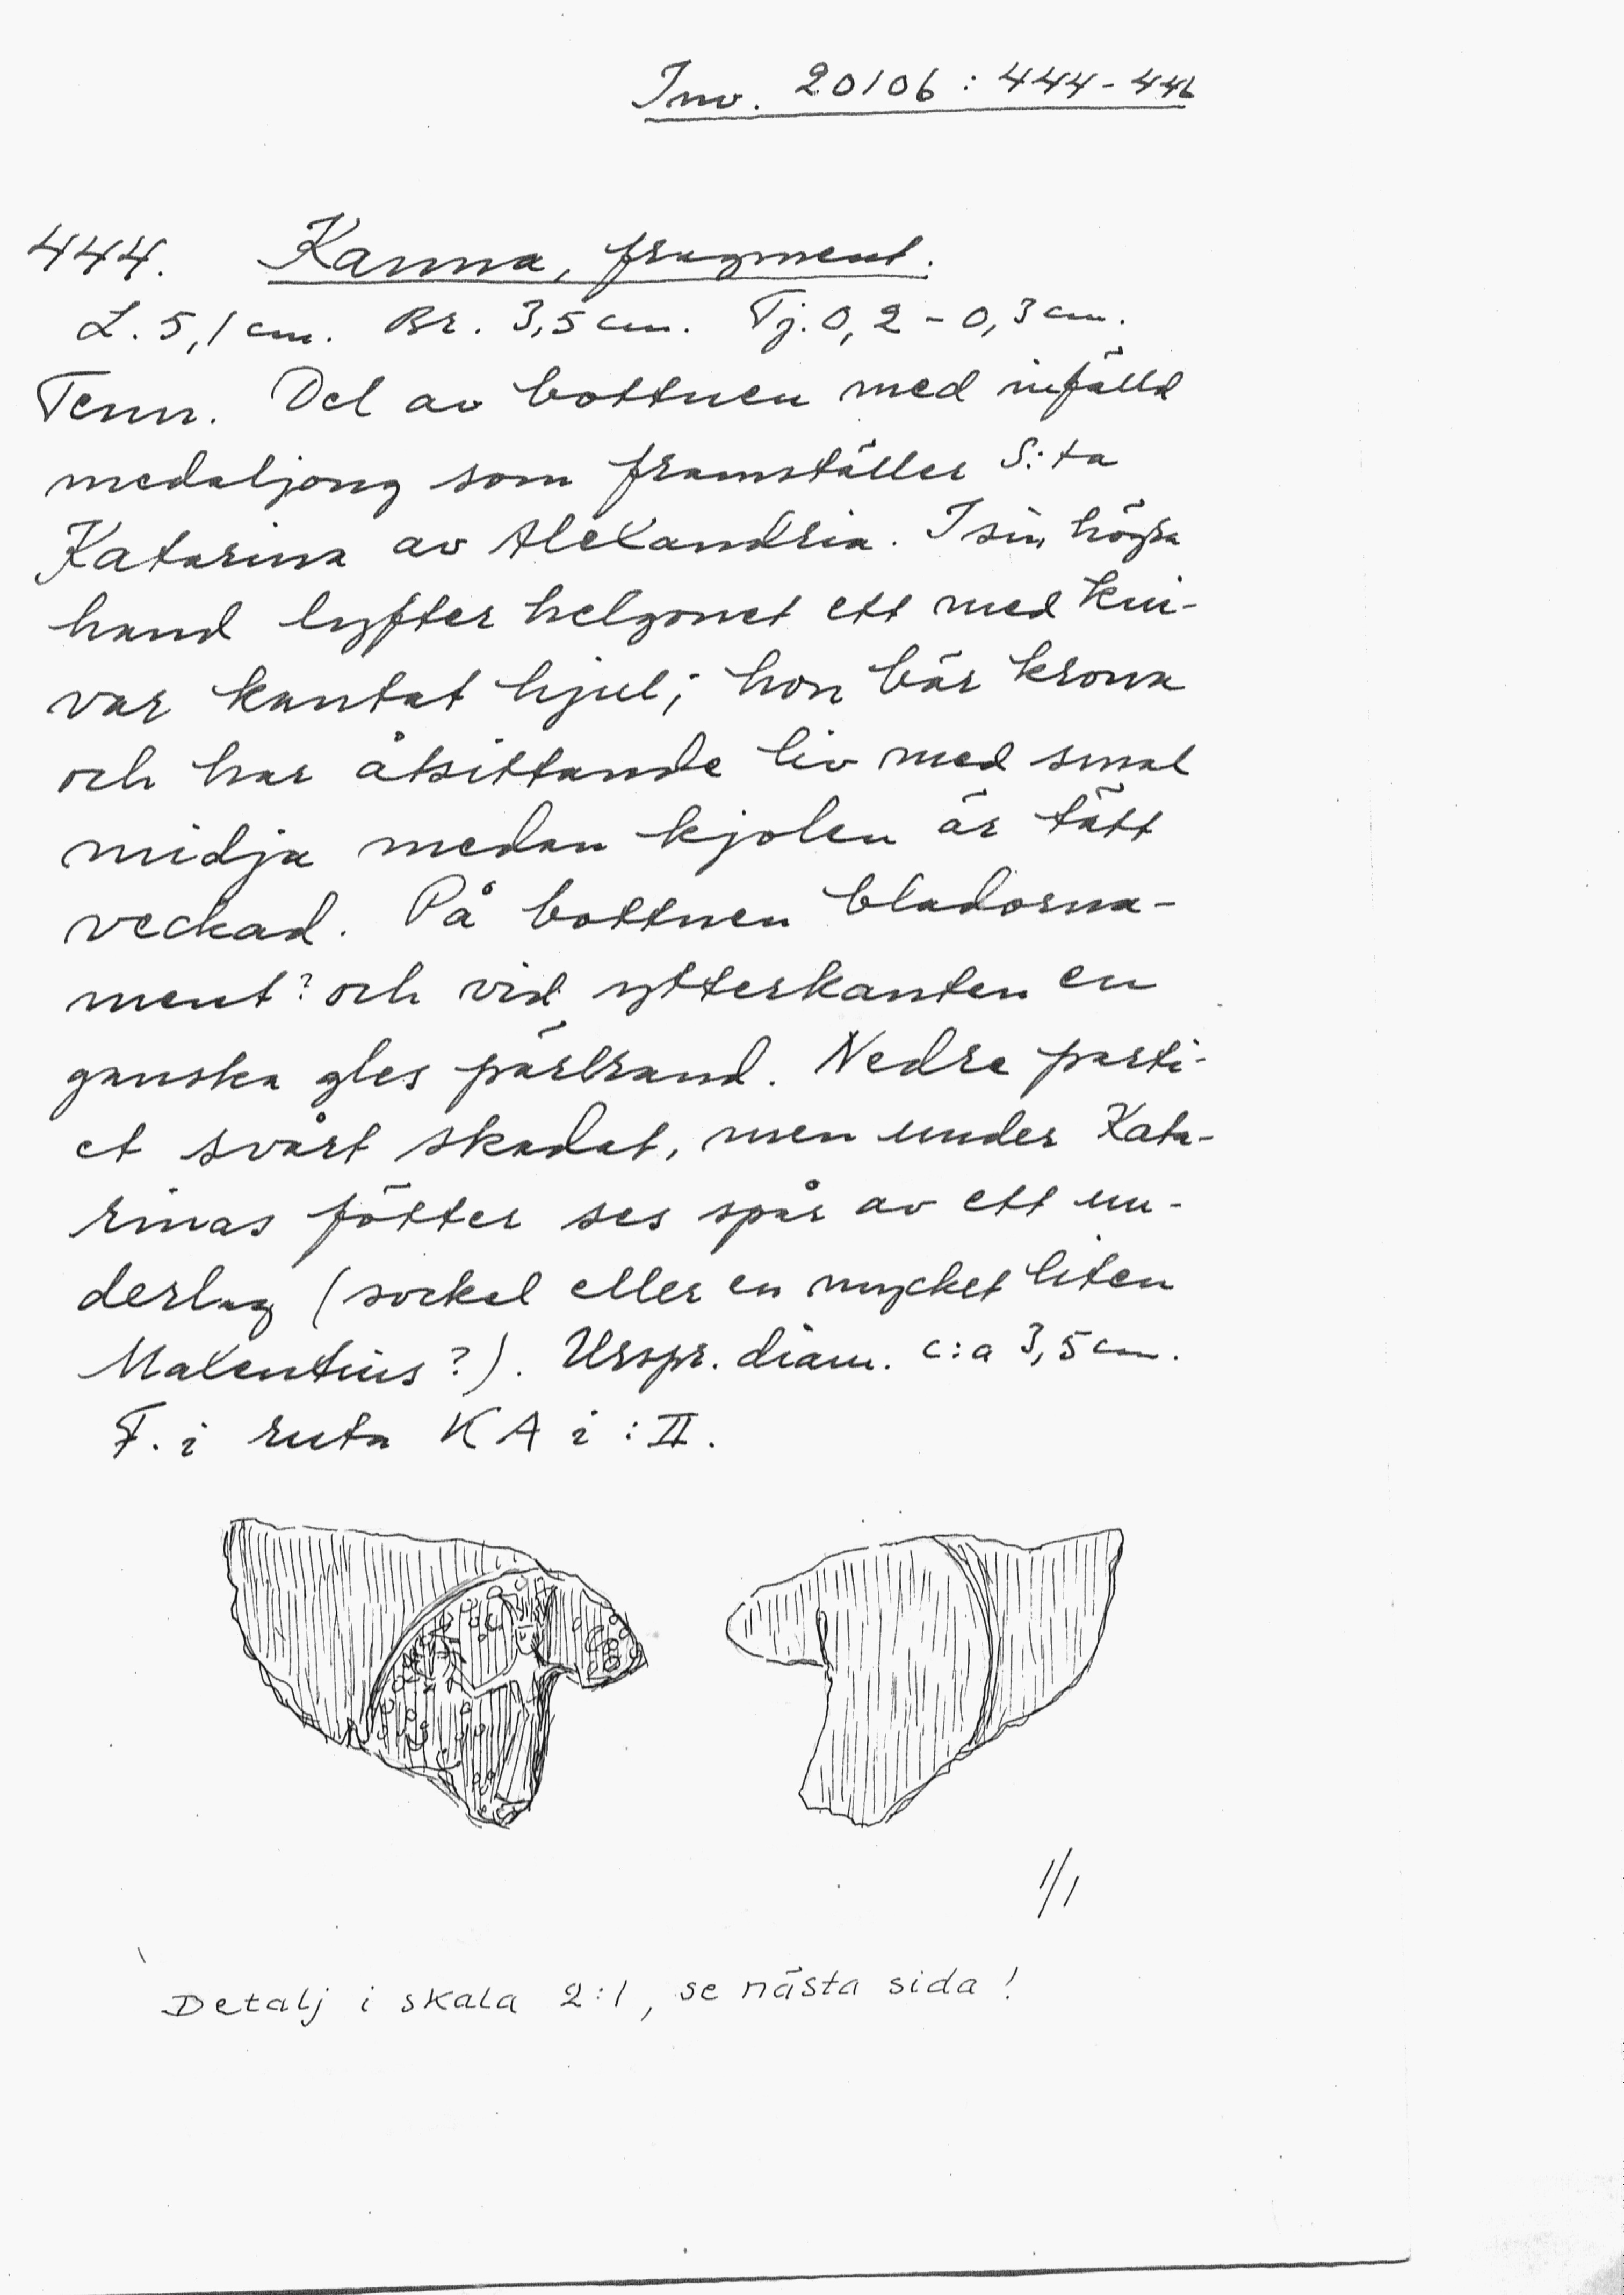 Inv. 20106: 444-446
444. Kanna, fragment.
L. 5,1 cm. Br. 3,5 cm. Tj. 0,2 - 0,3 cm.
Tenn. Del av bottnen med infälld
medaljong som framställer S:ta
Katarina av Alexandria. I sin högra
hand lyfter helgonet ett med kni-
var kantat hjul; hon bär krona
och har åtsittande liv med smal
midja medan kjolen är tätt
veckad. På bottnen bladorna-
ment? och vid ytterkanten en
ganska gles pärlrand. Nedre parti-
et svårt skadat, men under Kata-
rinas fötter ses spår av ett un-
derlag (sockel eller en mycket liten
Maxentius?). Urspr. diam. c:a 3,5 cm.
F. i ruta KA i : II.
1/1
Detalj i skala 2:1, se nästa sida!